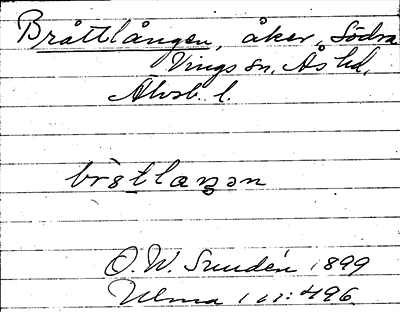 Bråttlången, åker, Södra
Vings sn. Ås hd.
Älvsb. l.
O. W. Sundén 1899
Ulma 101:496